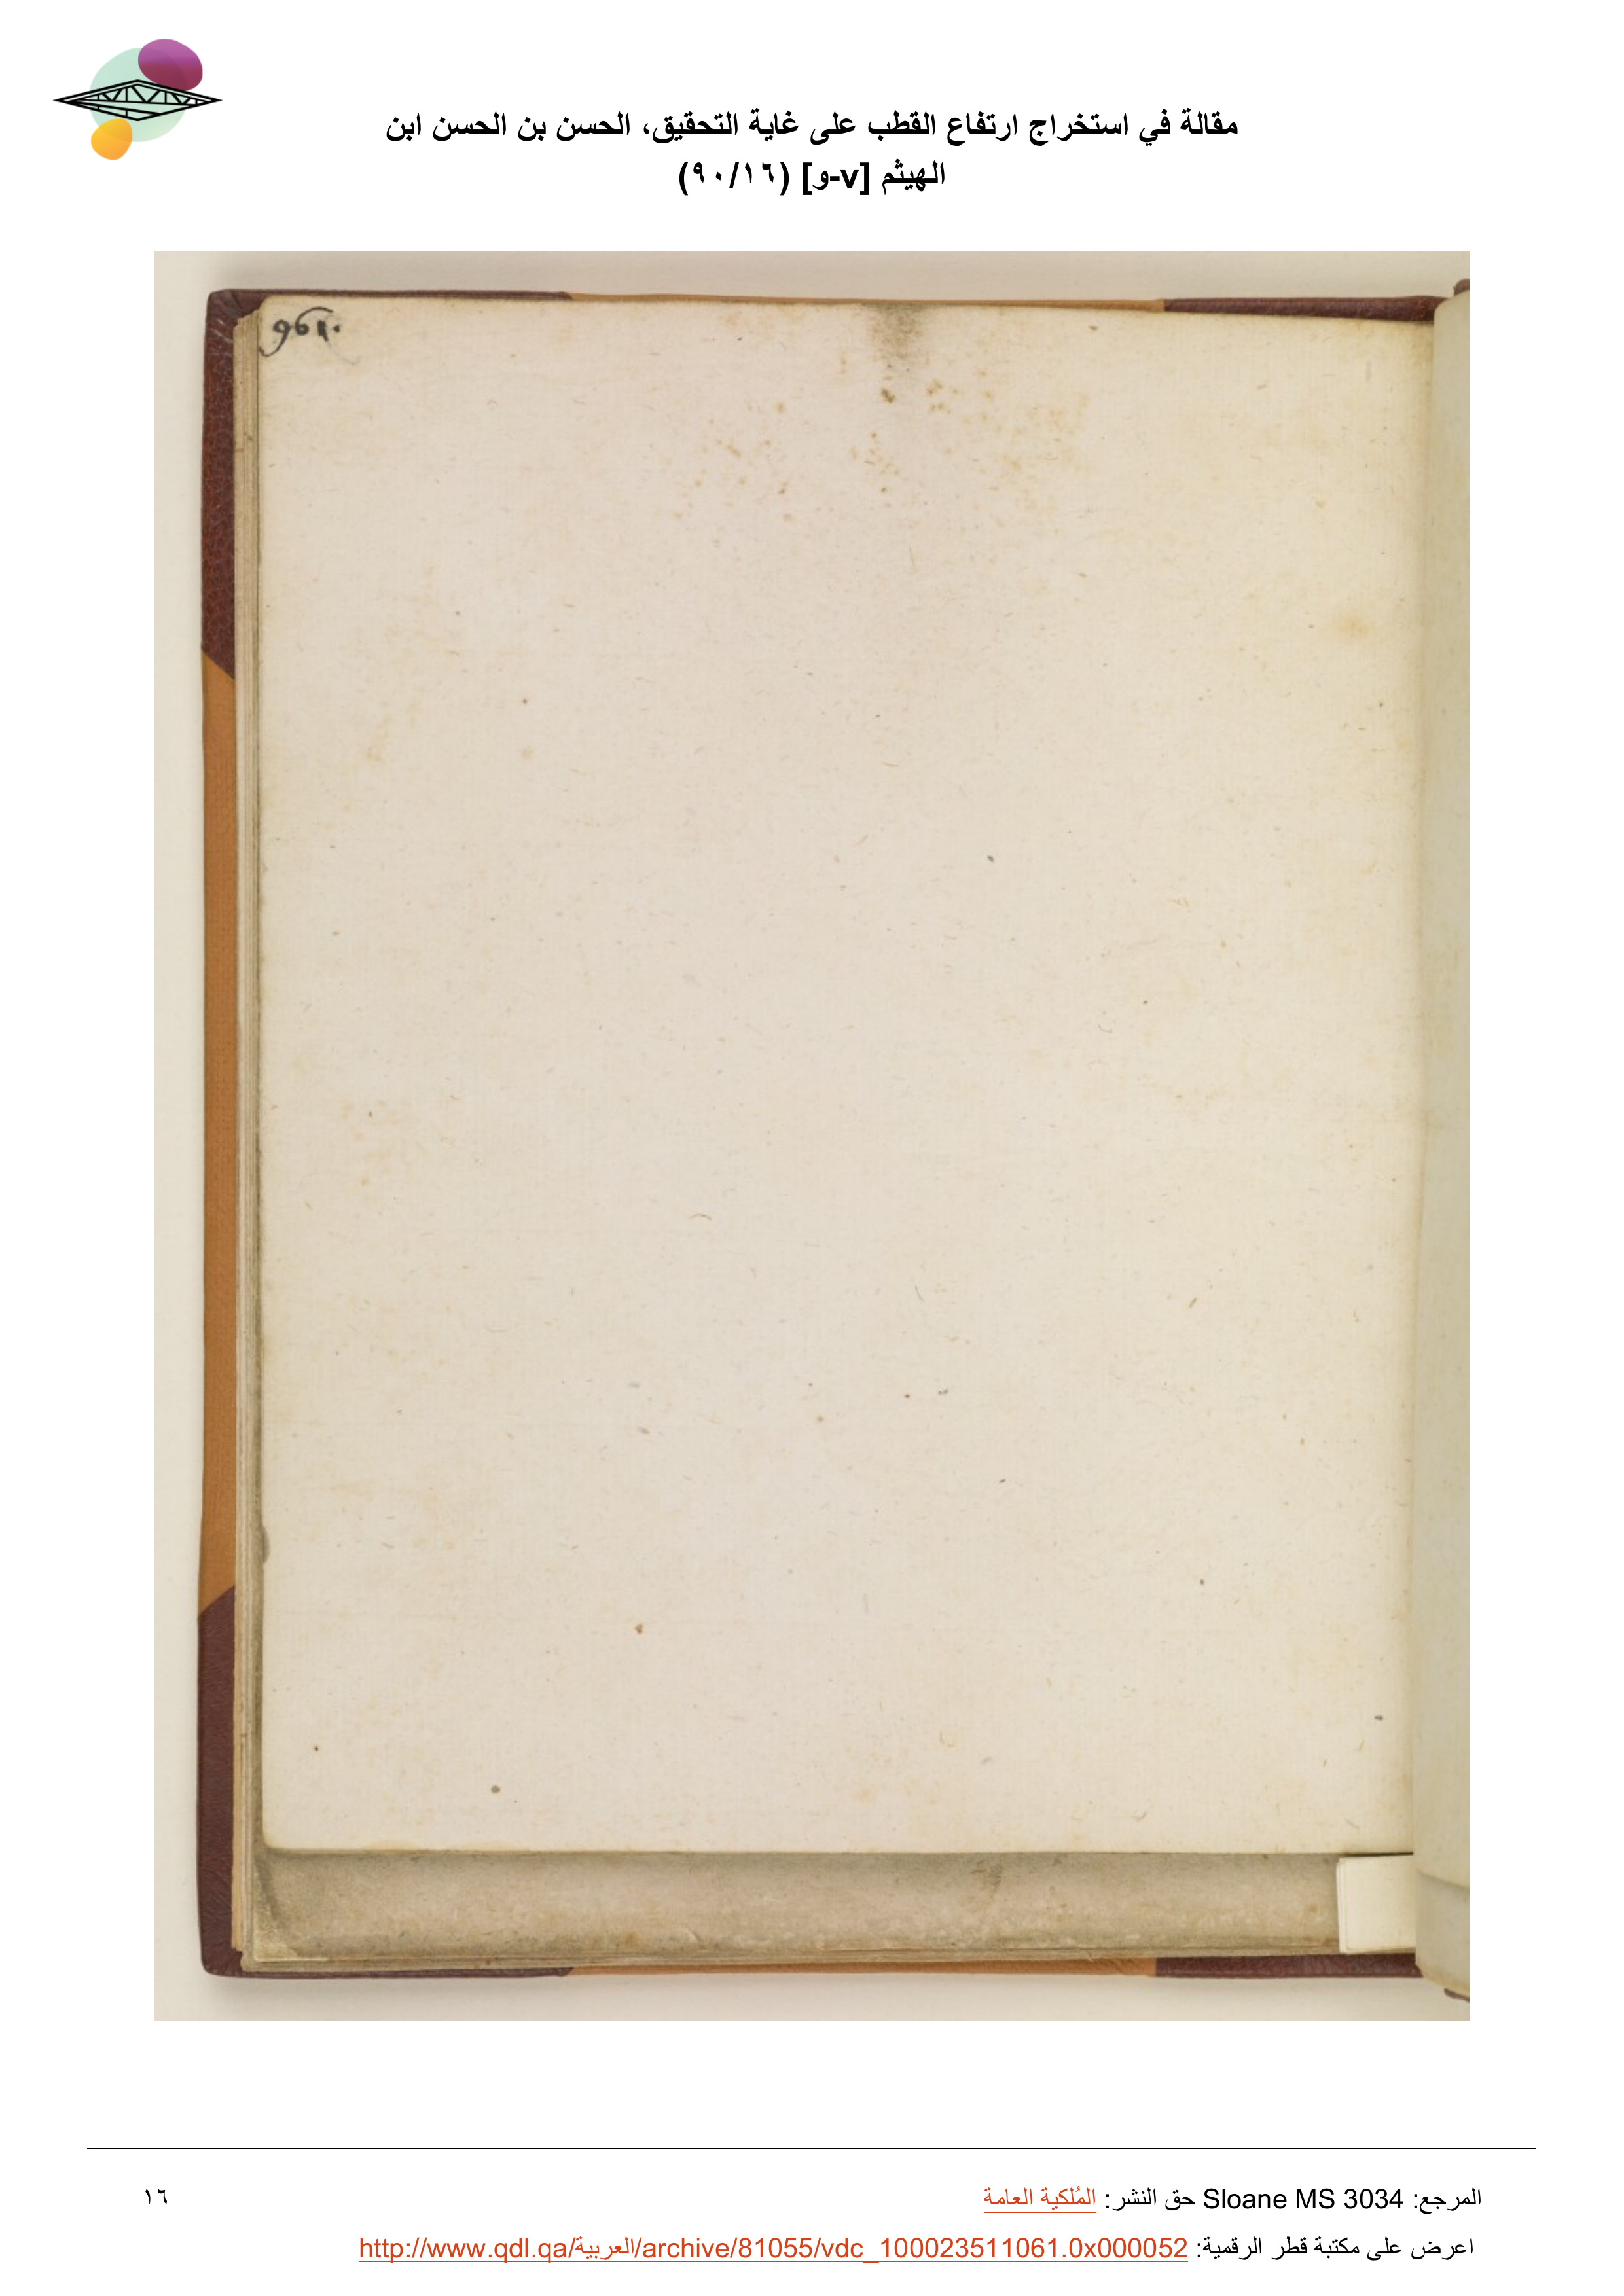 مقالة في استخراج ارتفاع القطب على غاية التحقيق، الحسن بن الحسن ابن
الهيثم [v-و] (٩٠/١٦)
961.
المرجع: Sloane MS 3034 حق النشر: المُلكية العامة
١٦
اعرض على مكتبة قطر الرقمية: http://www.qdl.qa/العربية/archive/81055/vdc_100023511061.0x000052